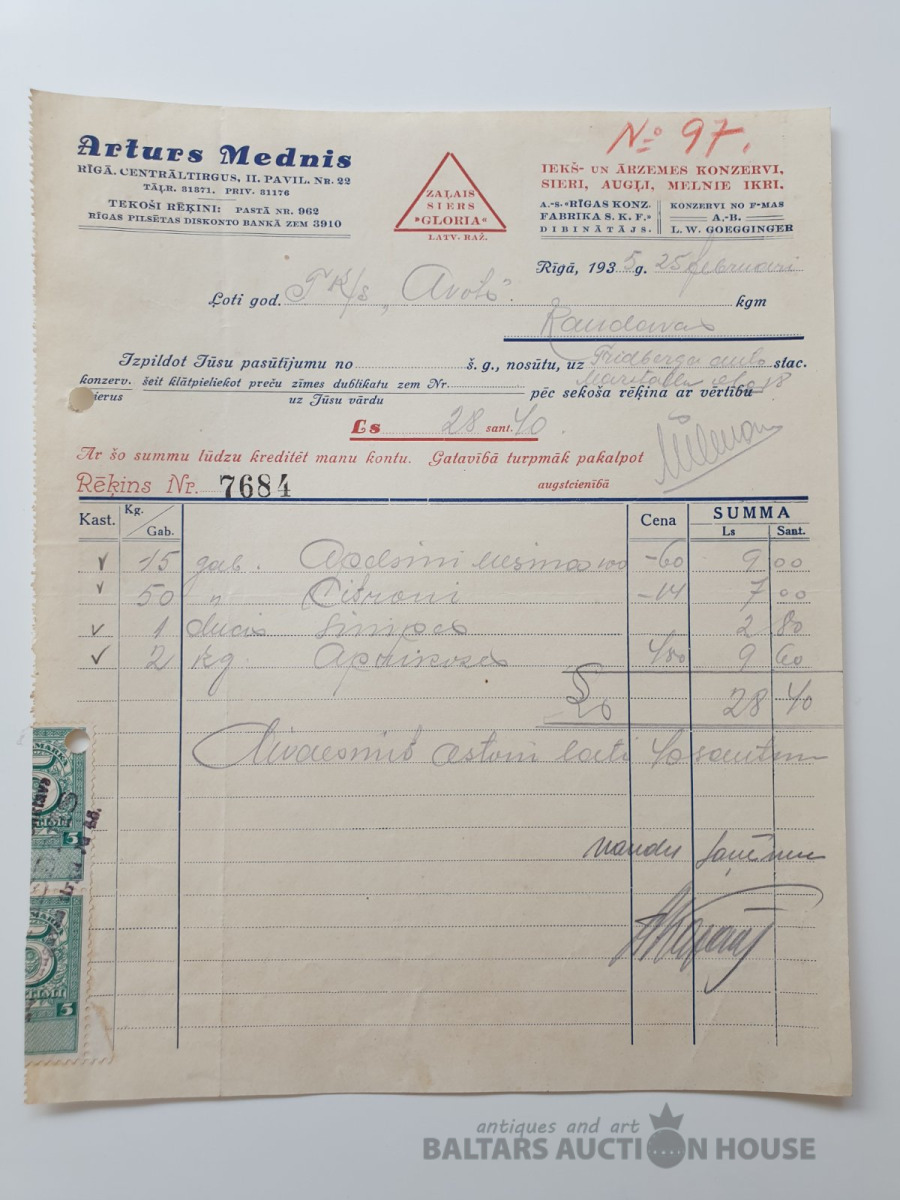 No 97.
Arturs Mednis
RĪGĀ. CENTRĀLTIRGUS, II. PAVIL. NR. 22
TĀLR. 31371. PRIV. 31176
TEKOŠI RĒĶINI: PASTĀ NR. 962
RĪGAS PILSĒTAS DISKONTO BANKĀ ZEM 3910
ZAĻAIS
SIERS
»GLORIA«
LATV. RAŽ.
IEKŠ- UN ĀRZEMES KONZERVI,
SIERI, AUGĻI, MELNIE IKRI.
A.-S. «RĪGAS KONZ.
FABRIKA S. K. F.»
DIBINĀTĀJS.
KONZERVI NO F-MAS
A.-B.
L. W. GOEGGINGER
Rīgā, 1935 g. 25 februari
Ļoti god. „Avots". kgm
Kandavas
Izpildot Jūsu pasūtījumu no š. g., nosūtu, uz stac.
konzerv. šeit klātpieliekot preču zīmes dublikatu zem Nr.
sierus uz Jūsu vārdu
pēc sekoša rēķina ar vērtību
Ls 28 sant. 40.
Ar šo summu lūdzu kreditēt manu kontu. Gatavībā turpmāk pakalpot
augstcienībā
Rēķins Nr. 7684
Kast. Kg. Gab. Cena SUMMA
Ls Sant.
15 gab. Apelsini -60 9 00
50 " Citroni -14 7 00
1 2 80
2 kg. Aprikozes 480 9 60
28 40
Divdesmit astoni lati 40 santimi
naudu saņēmu
5
5
antiques and art
BALTARS AUCTION HOUSE